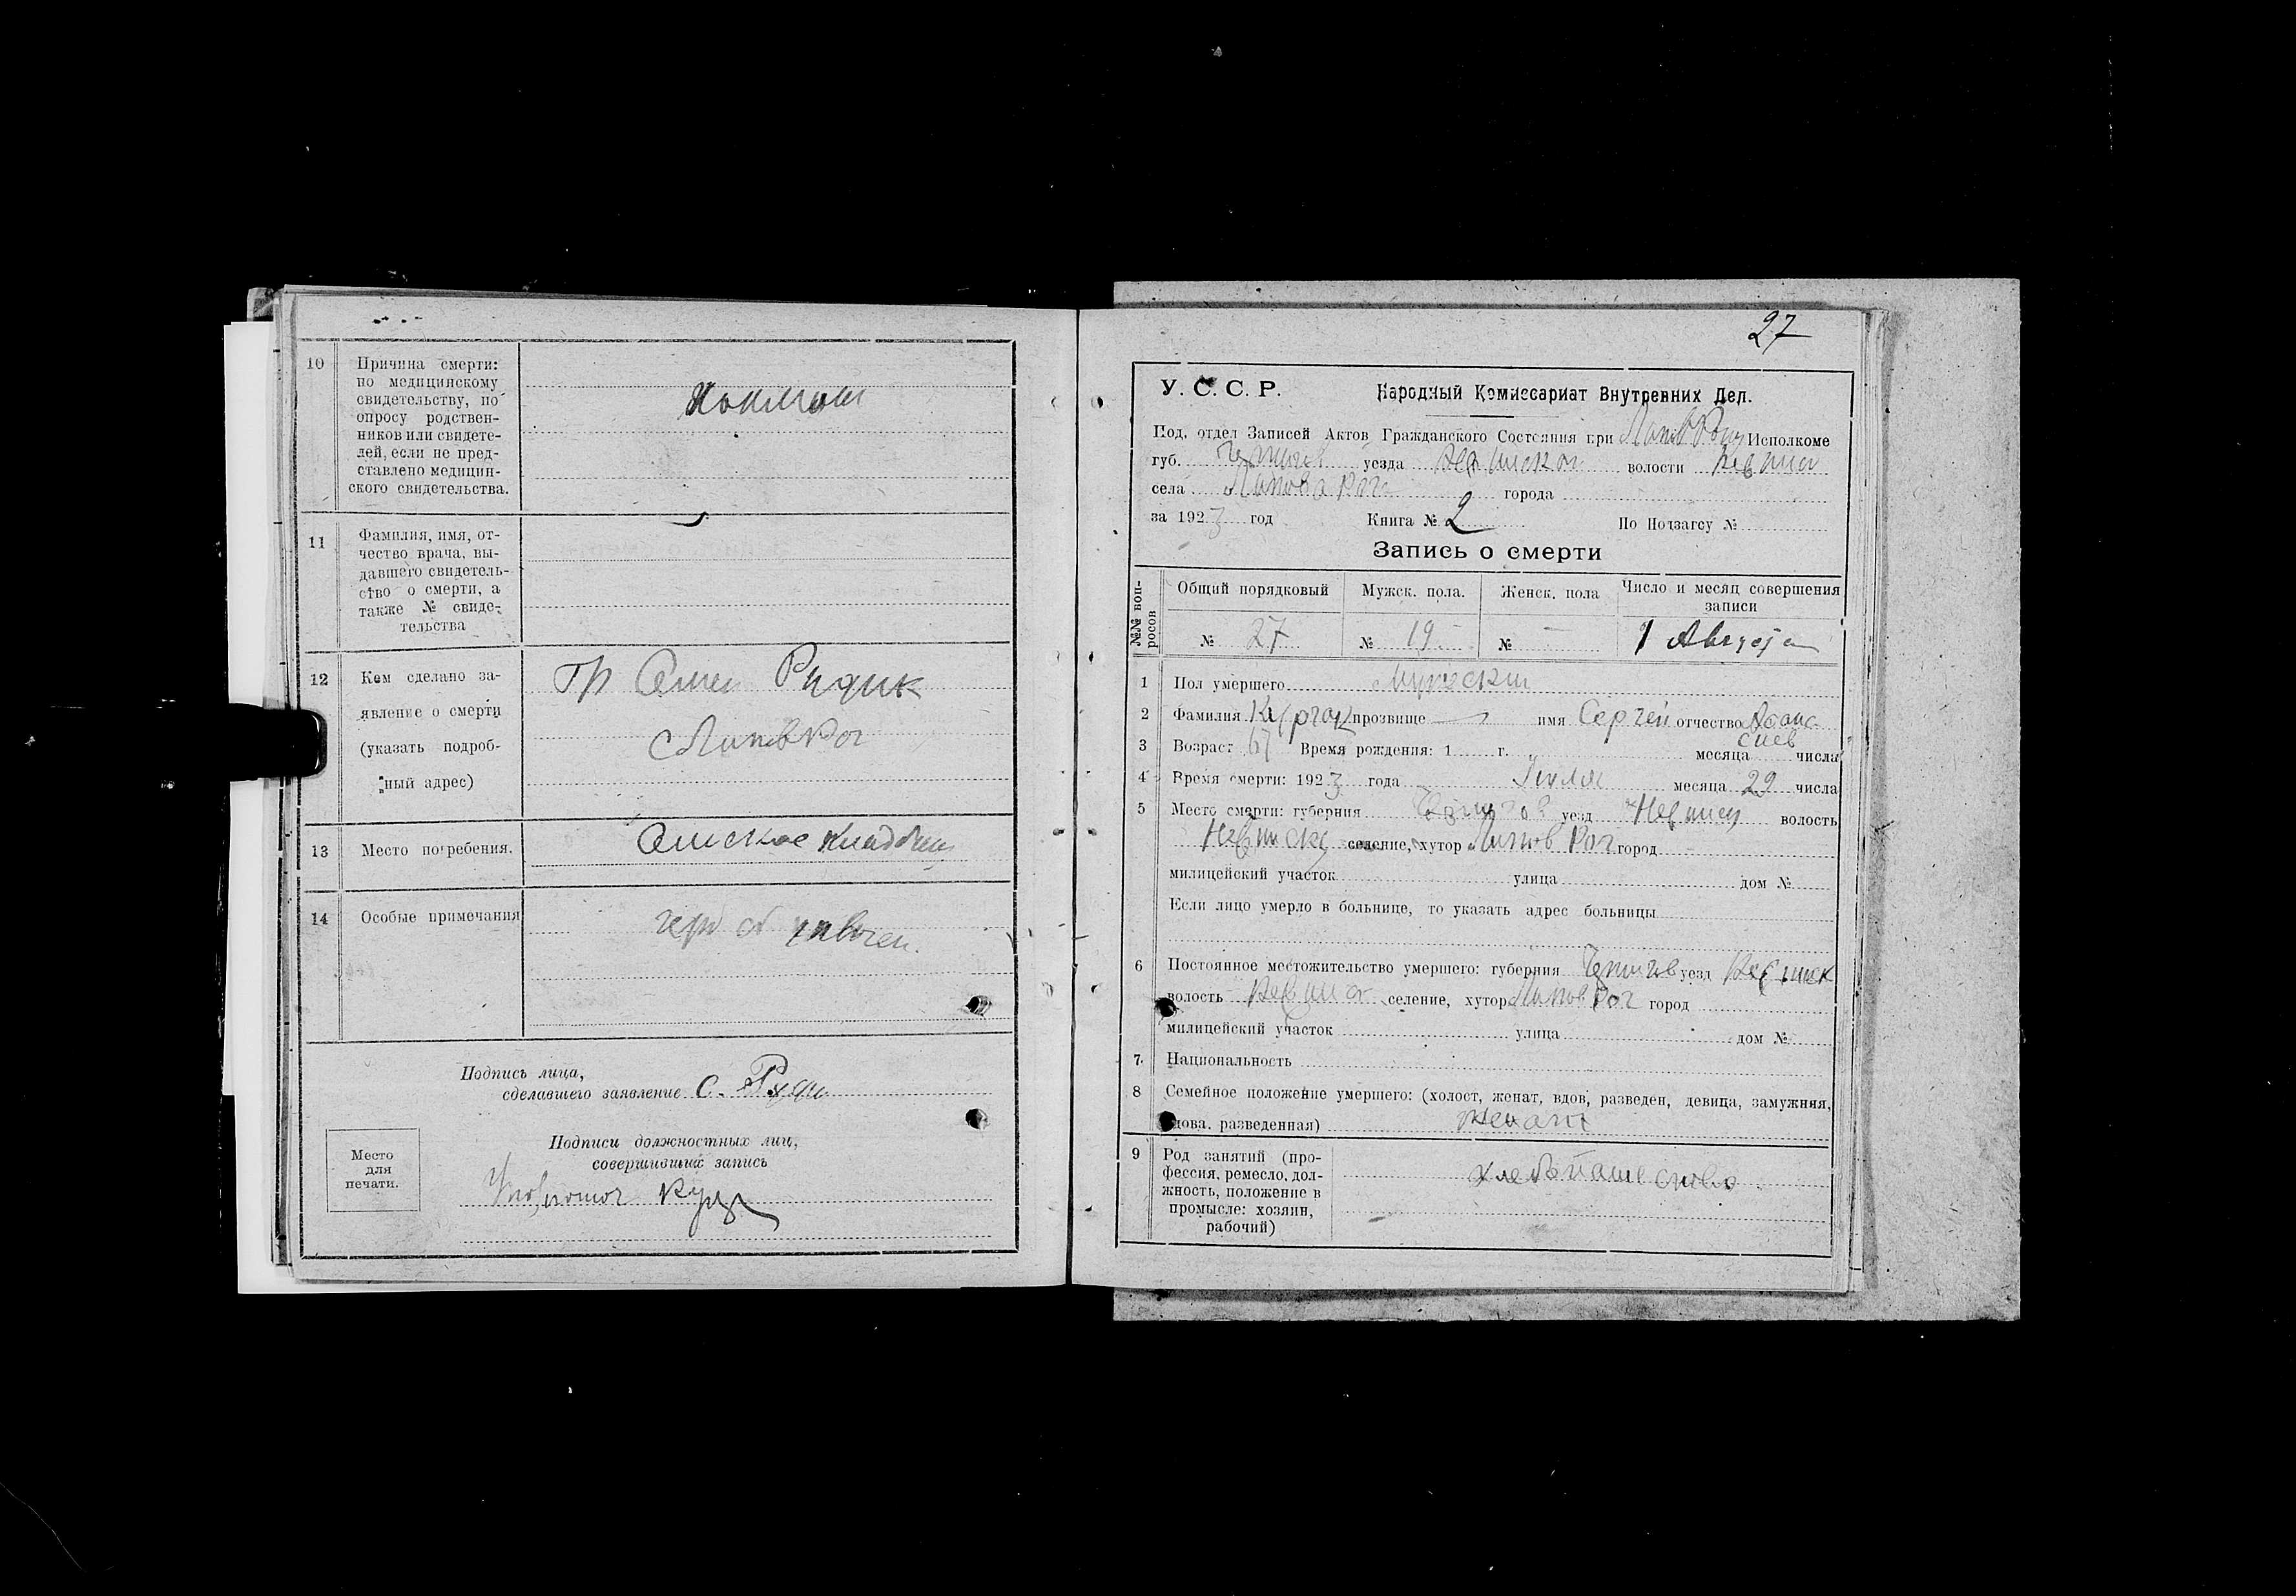 10
Причина смерти:
по медицинскому
свидетельству, по
опросу родствен-
ников или свидете-
лей, если не пред-
ставлено медицин-
ского свидетельства.
11
Фамилия, имя, от-
чество врача, вы-
давшего свидетель-
ство о смерти, а
также № свиде-
тельства
12
Кем сделано за-
явление о смерти
(указать подроб-
ный адрес)
Гр Рудик
с Липов Рог
13
Место погребения.
кладбищ
14
Особые примечания
Подпись лица,
сделавшего заявление С. Руди
Подписи должностных лиц,
совершивших запись
Место
для
печати.
27
У. С. С. Р. Народный Комиссариат Внутренних Дел.
Под. отдел Записей Актов Гражданского Состояния при Липов Рог Исполкоме
губ. Чернигов уезда волости
села Липова Рога города
за 1923 год Книга № 2 По Подзагсу №
Запись о смерти
№№ воп-
росов
Общий порядковый Мужск. пола. Женск. пола Число и месяц совершения
записи
№ 27 № 19 № — 1 Августа
1 Пол умершего мужской
2 Фамилия прозвище — имя Сергей отчество Афана
сиев
3 Возраст 67 Время рождения: 1 г. месяца числа
4 Время смерти: 1923 года Июля месяца 29 числа
5 Место смерти: губерния Чернигов уезд волость
селение, хутор Липов Рог город
милицейский участок улица дом №
Если лицо умерло в больнице, то указать адрес больницы
6 Постоянное местожительство умершего: губерния Чернигов уезд
волость селение, хутор Липов Рог город
милицейский участок улица дом №
7. Национальность
8 Семейное положение умершего: (холост, женат, вдов, разведен, девица, замужняя,
вдова. разведенная) женат
9
Род занятий (про-
фессия, ремесло, дол-
жность, положение в
промысле: хозяин,
рабочий)
хлебопашество